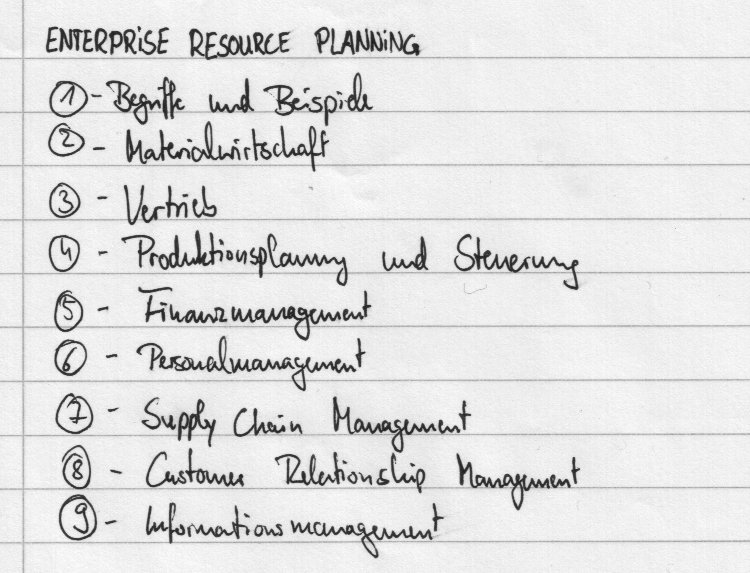 ENTERPRISE RESOURCE PLANNING
1 - Begriffe und Beispiele
2 - Materialwirtschaft
3 - Vertrieb
4 - Produktionsplanung und Steuerung
5 - Finanzmanagement
6 - Personalmanagement
7 - Supply Chain Management
8 - Customer Relationship Management
9 - Informationsmanagement